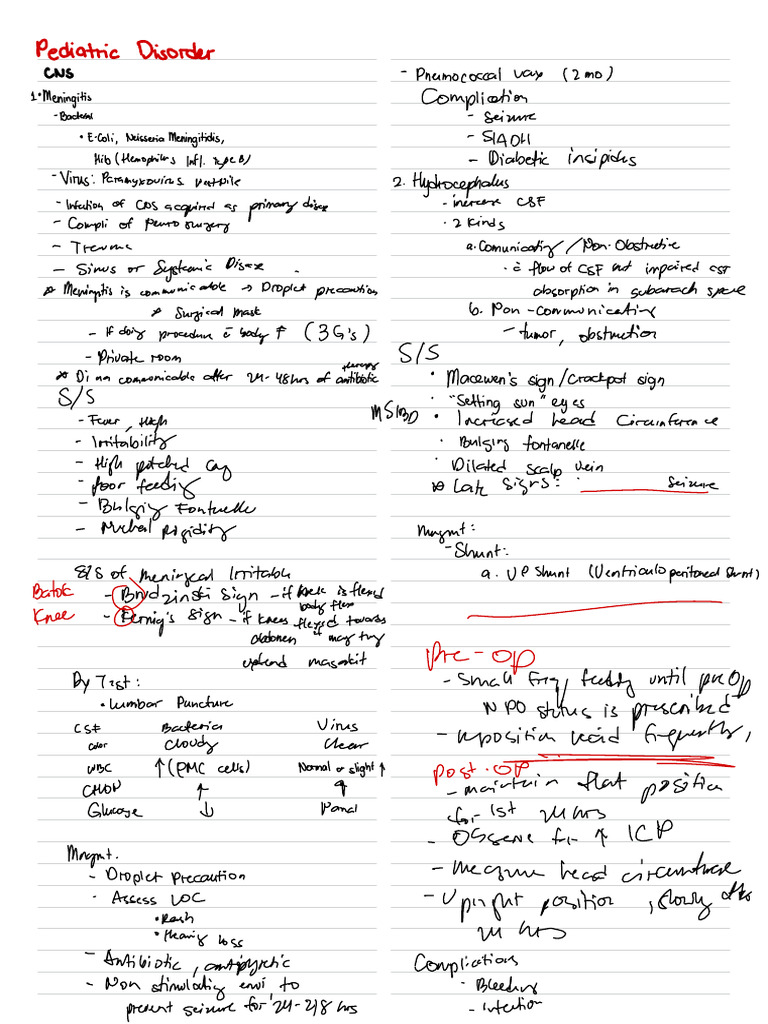 Pediatric Disorder
CNS
1. • Meningitis
- Bacterial
• E-Coli, Neisseria Meningitidis,
Hib (Hemophilus Infl. type B)
- Virus: Paramyxovirus
- Infection of CNS acquired as primary dises
- Compli of Neurosurgery
- Trauma
- Sinus or Systemic Disex
* Meningitis is communicable → Droplet precaution
* Surgical mask
- If doing procedure c̄ body F (3G's)
- Private room
* communicable after 24-48hrs of antibiotic
therapy
S/S
- Fever, High
- Irritability
- High pitched cry
- Poor feeding
- Bulging Fontanelle
- Nuchal Rigidity
S/S of meningeal Irritable
Batok - Brudzinski Sign - if neck is flexed
body flex
Knee - Kernig's Sign - if knees flexed towards
abdomen if may try
uphend masakit
Dx Test:
• Lumbar Puncture
CSF Bacteria Virus
Color Cloudy Clear
WBC ↑ (PMC cells) Normal or slight ↑
CHON ↑ ↑
Glucose ↓
Mngmt.
- Droplet Precaution
- Assess LOC
• Rash
• Hearing loss
- Antibiotic, antipyretic
- Non stimulating envi to
prevent seizure for 24-48 hrs
- Pneumococcal vax (2mo)
Complication
- Seizure
- SIADH
- Diabetic insipidus
2. Hydrocephalus
- increase CSF
• 2 Kinds
a. Comunicating / Non-Obstructive
• c̄ flow of CSF but impaired CSF
absorption in subarach space
b. Non-communicating
- tumor, obstruction
S/S
• Macewen's sign/Crackpot sign
• "Setting sun" eyes
MSIBD • Increased head Circumference
• Bulging fontanelle
• Dilated scalp vein
* Late Signs: Seizure
Mngmt:
- Shunt:
a. VP Shunt (Ventriculo peritoneal shunt)
Pre-op
- Small freq feeding until pre op
NPO status is prescribed
- reposition head frequently,
Post-op
- maintain flat position
for 1st 24 hrs
- Observe for ↑ ICP
- measure head circumference
- Upright position, slowly after
24 hrs
Complications
• Bleeding
- Infection